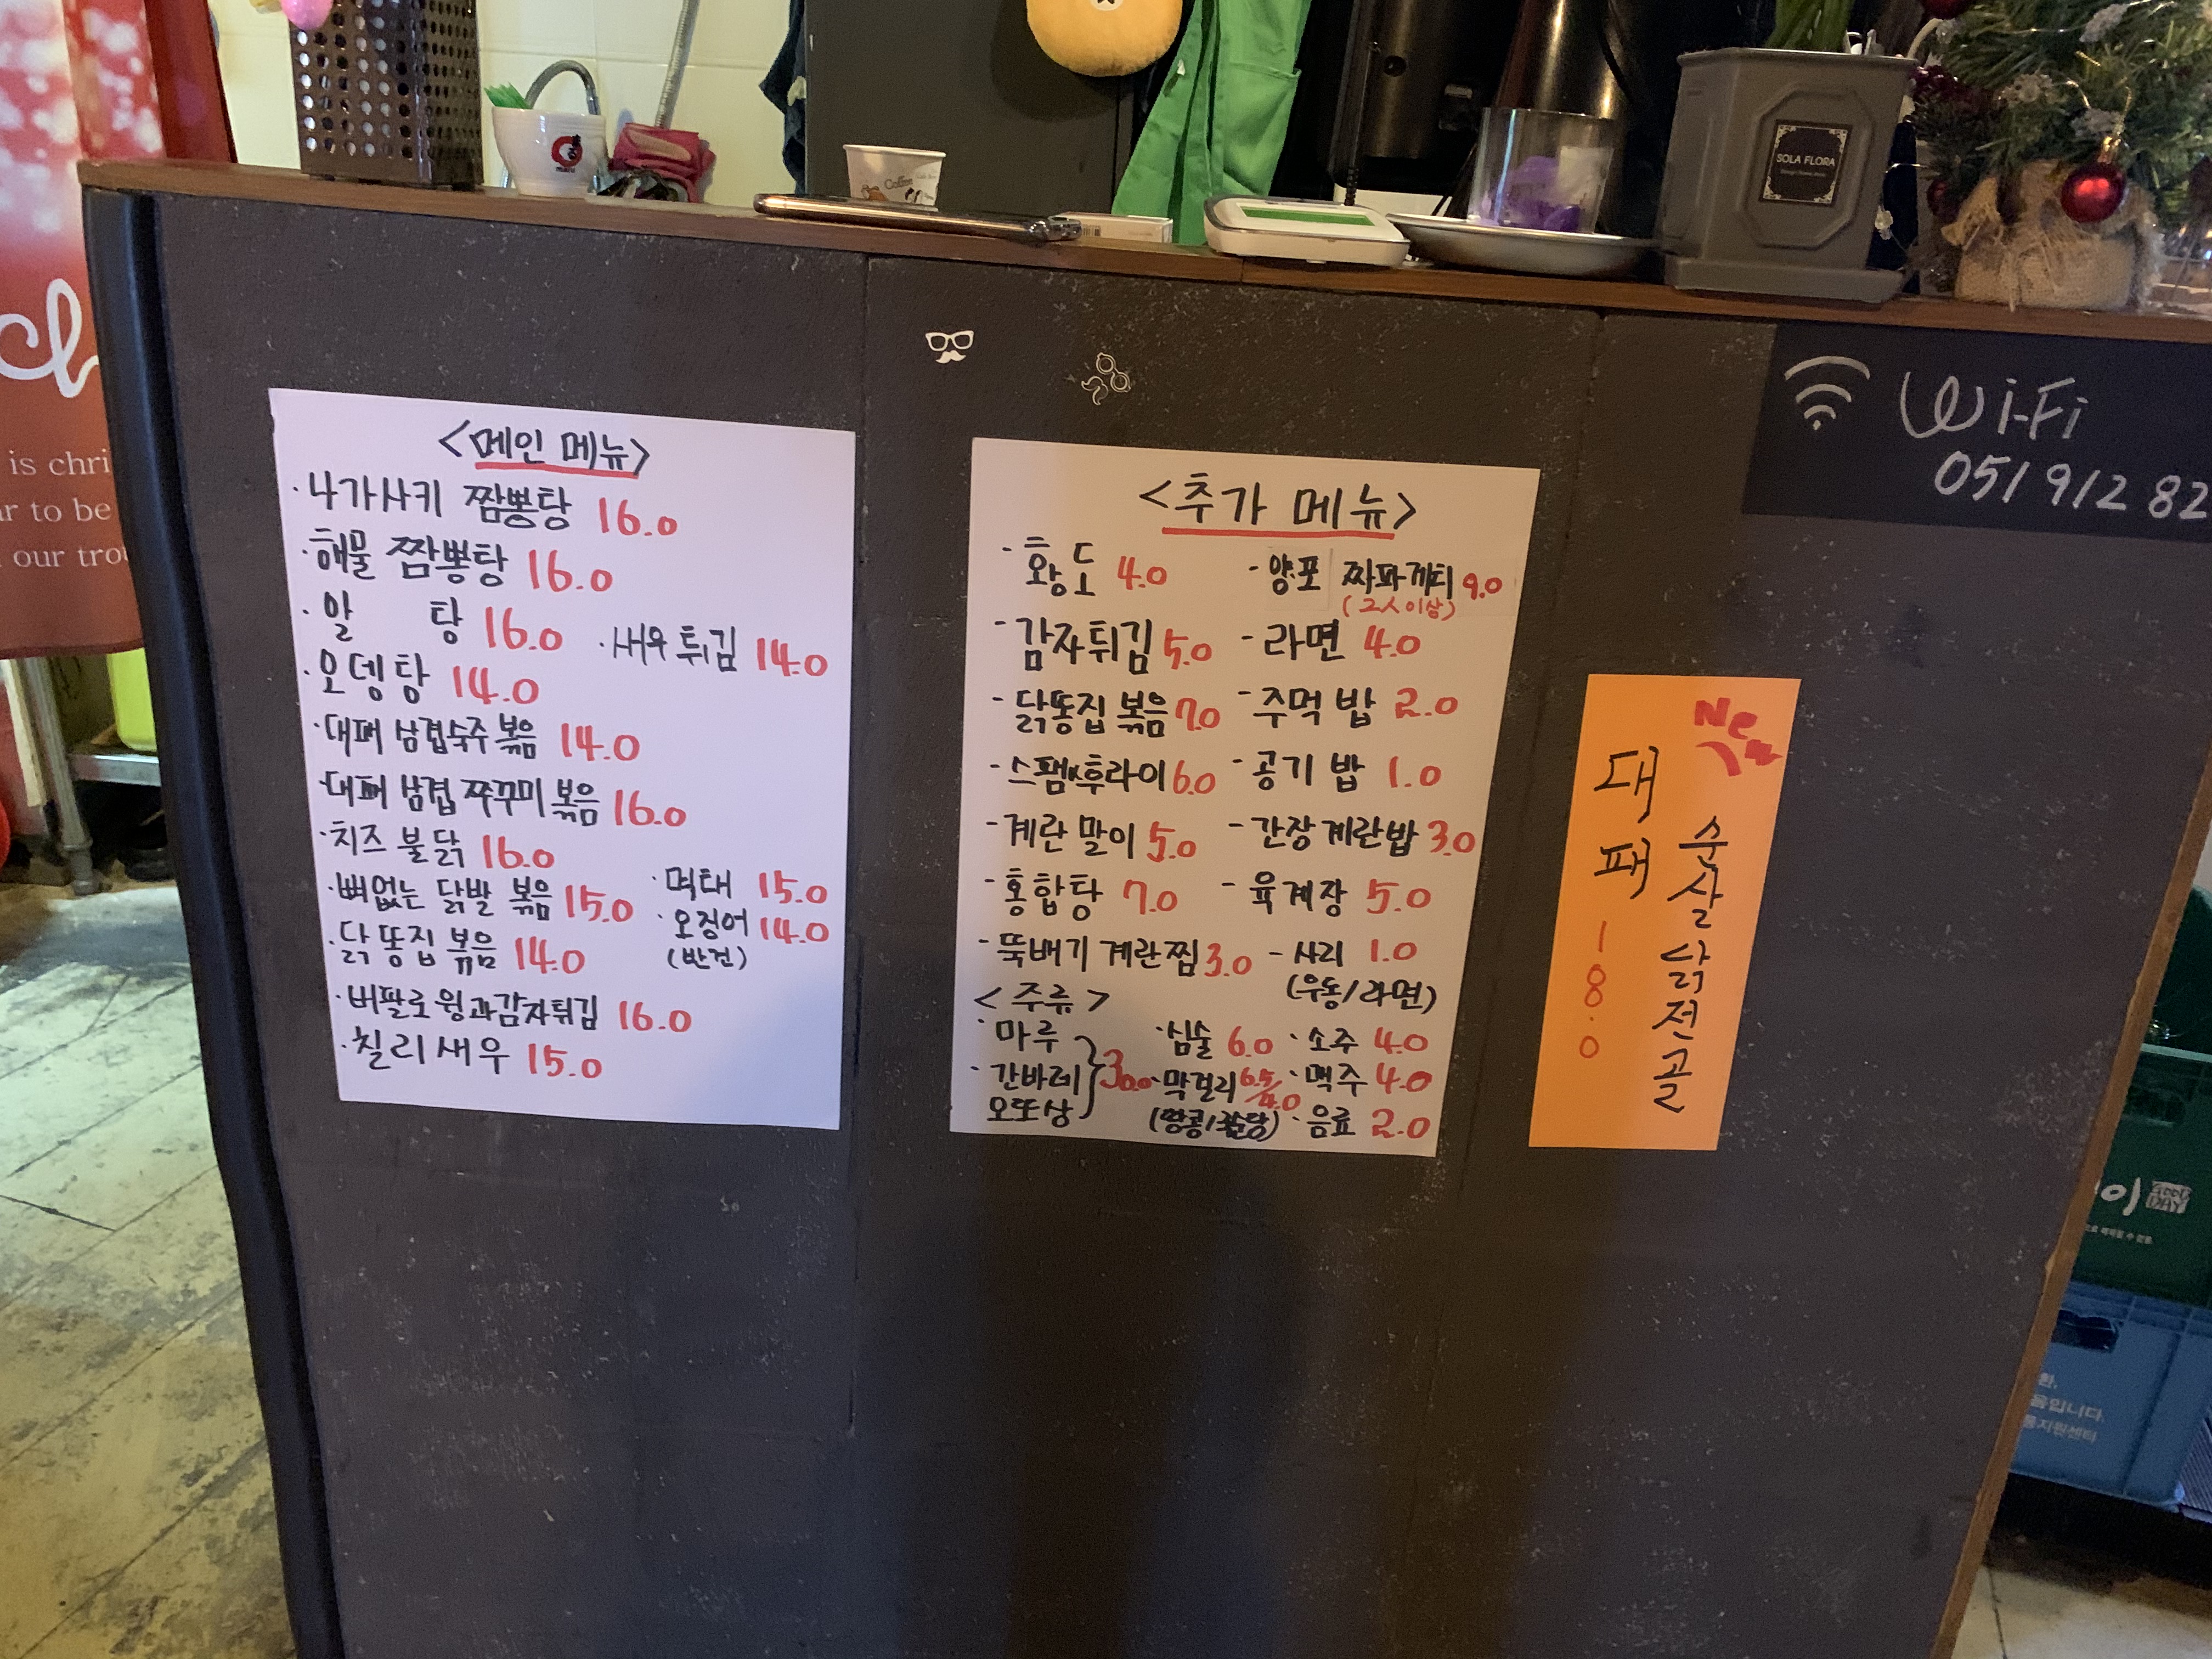 <메인 메뉴>
· 나가사키 짬뽕탕 16.0
· 해물 짬뽕탕 16.0
· 알 탕 16.0
· 새우 튀김 14.0
· 오뎅탕 14.0
· 대패 삼겹숙주 볶음 14.0
· 대패 삼겹 쭈꾸미 볶음 16.0
· 치즈 불닭 16.0
· 뼈없는 닭발 볶음 15.0
· 먹태 15.0
· 오징어 14.0
(반건)
· 닭똥집 볶음 14.0
· 버팔로윙과감자튀김 16.0
· 칠리새우 15.0
<추가 메뉴>
- 황도 4.0
- 양푼 짜파게티 9.0
(2人이상)
- 감자튀김 5.0
- 라면 4.0
- 닭똥집 볶음 7.0
- 주먹밥 2.0
- 스팸&후라이 6.0
- 공기밥 1.0
- 계란말이 5.0
- 간장계란밥 3.0
- 홍합탕 7.0
- 육계장 5.0
- 뚝배기 계란찜 3.0
- 사리 1.0
(우동/라면)
<주류>
· 마루
· 간바레
오또상
30.0
· 심술 6.0
· 소주 4.0
· 막걸리 6.5/4.0
· 맥주 4.0
· 음료 2.0
New
대패
순살닭전골
18.0
Wi-Fi
051 912 82
SOLA FLORA
Coffee
is chri
r to be
our tro
GOOD DAY